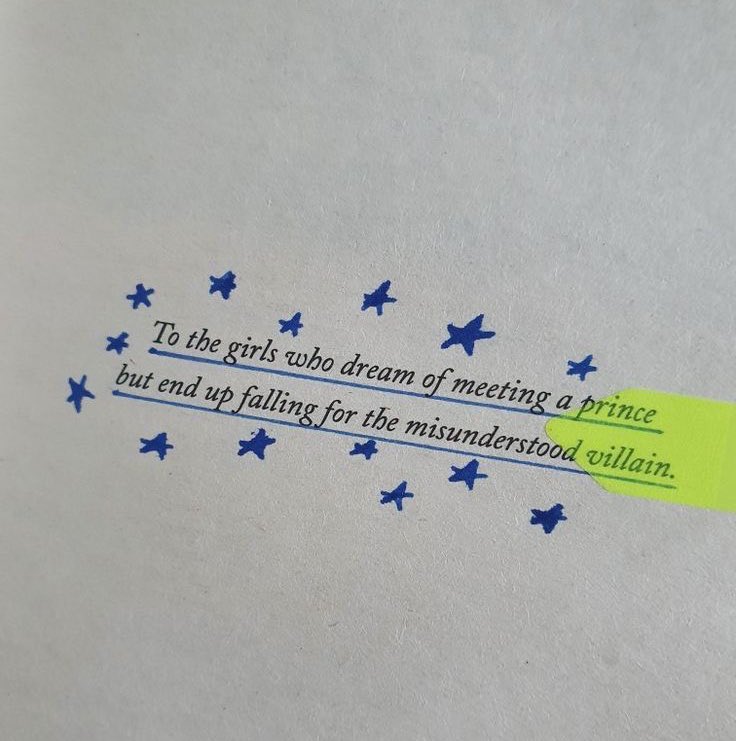 To the girls who dream of meeting a prince
but end up falling for the misunderstood villain.